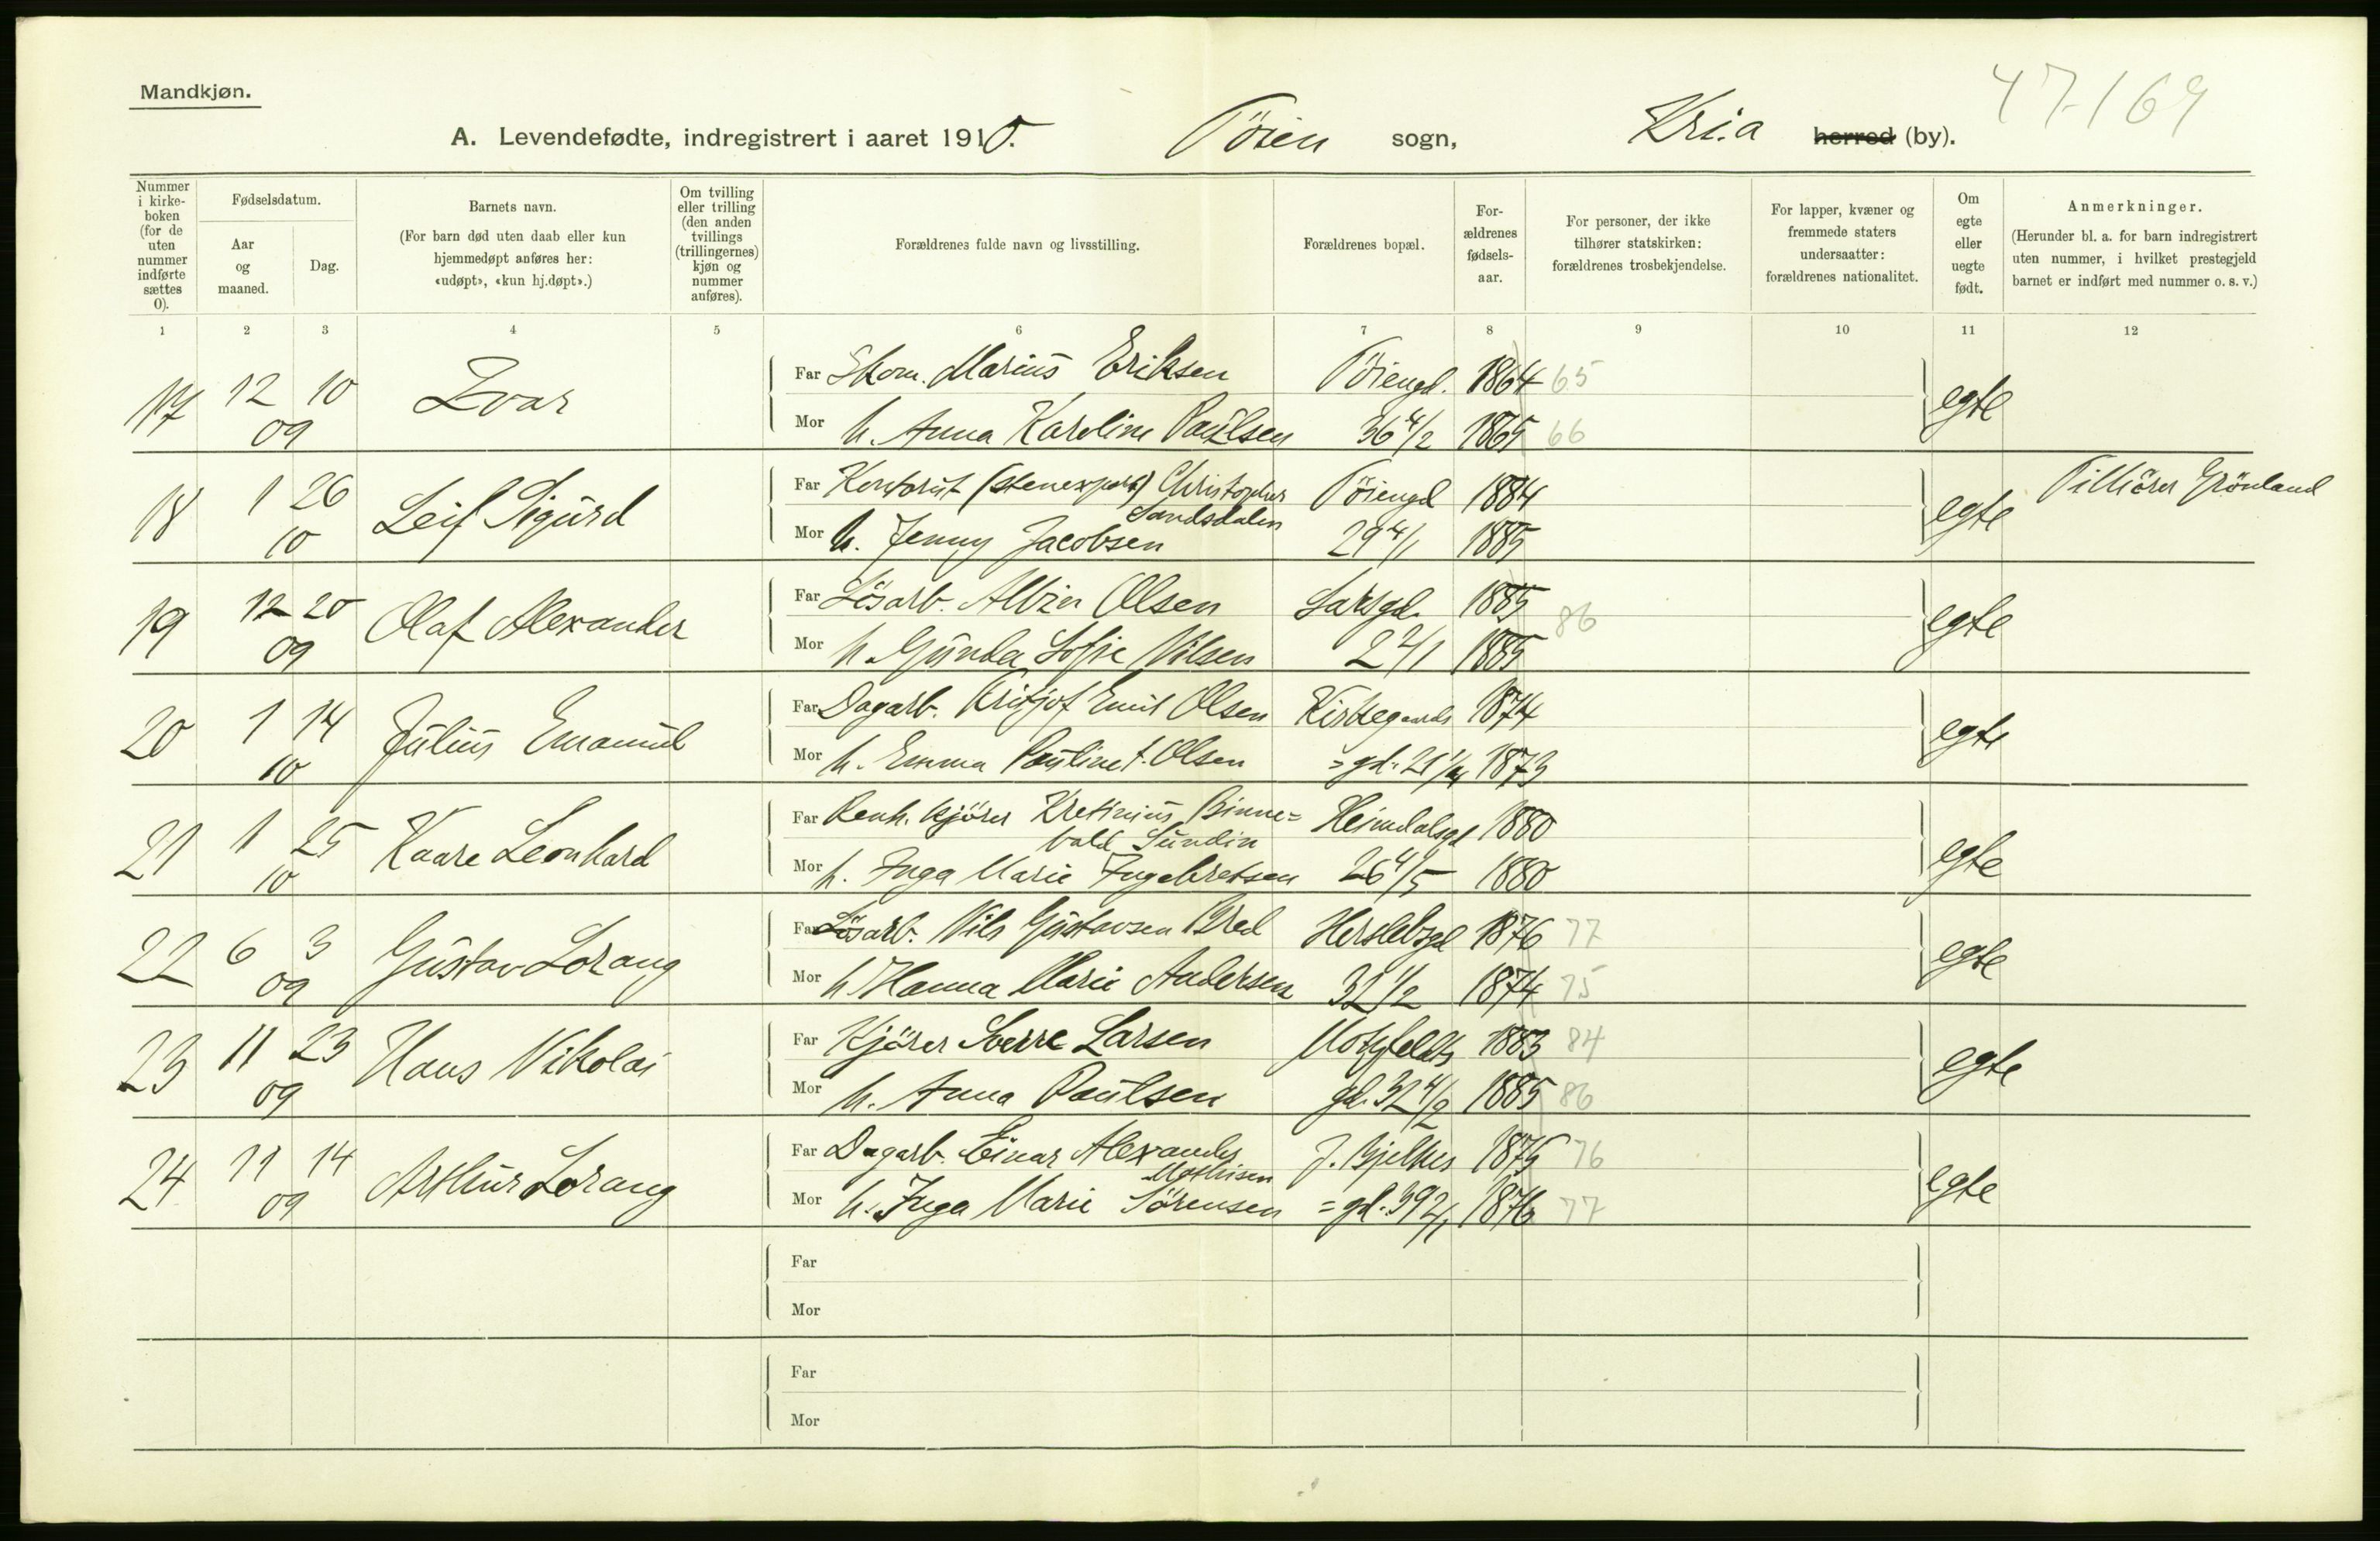 47-169
Mandkjøn.
A. Levendefødte, indregistrert i aaret 1910. Töien sogn, Kria herred (by).
Nummer i kirkeboken (for de uten nummer indførte sættes 0).
Fødselsdatum.
Aar og maaned.
Dag.
Barnets navn.
(For barn død uten daab eller kun hjemmedøpt anføres her: «udøpt», «kun hj.døpt».)
Om tvilling eller trilling (den anden tvillings (trillingernes) kjøn og nummer anføres).
Forældrenes fulde navn og livsstilling.
Forældrenes bopæl.
Forældrenes fødselsaar.
For personer, der ikke tilhører statskirken: forældrenes trosbekjendelse.
For lapper, kvæner og fremmede staters undersaatter: forældrenes nationalitet.
Om egte eller uegte født.
Anmerkninger.
(Herunder bl. a. for barn indregistrert uten nummer, i hvilket prestegjeld barnet er indført med nummer o. s. v.)
1 2 3 4 5 6 7 8 9 10 11 12
17 12 09 10 Ivar
Far Skom. Marius Eriksen Töiengd. 1864 65 egte
Mor h. Anna Karoline Paülsen 36 4/2 1865 66
18 1 10 26 Leif Sigürd
Far Kontorist (stenexport) Christopher Sandsdalen Töiengd 1884 egte Tilhörer Grönland
Mor h. Jenny Jacobsen 29 4/1 1885
19 12 09 20 Olaf Alexander
Far Lösarb. Albin Olsen Larsgd. 1885 86 egte
Mor h. Günda Sofie Nilsen 2 2/1 1885
20 1 10 14 Jülius Emanuel
Far Dagarb. Fritjof Emil Olsen Kirkegaards 1874 egte
Mor h. Emma Paüline f. Olsen =gd. 21 1873
21 1 10 25 Kaare Leonhard
Far Renh. kjörer Kretinius Binne=vald Sündin Heimdalsgd 1880 egte
Mor h. Inga Marie Ingebretsen 26 4/5 1880
22 6 09 3 Güstav Lorang
Far Lösarb. Nils Güstavsen Bred Herslebsgd 1876 77 egte
Mor h. Hanna Marie Andersen 32 1/2 1874 75
23 11 09 23 Hans Nikolai
Far Kjörer Sverre Larsen Motzfeldts 1883 84 egte
Mor h. Anna Paülsen gd. 32 4/2 1885 86
24 11 09 14 Arthür Lorang
Far Dagarb. Einar Alexander Mathisen J. Bjelkes 1875 76 egte
Mor h. Inga Marie Sörensen =gd. 39 2/1 1876 77
Far
Mor
Far
Mor